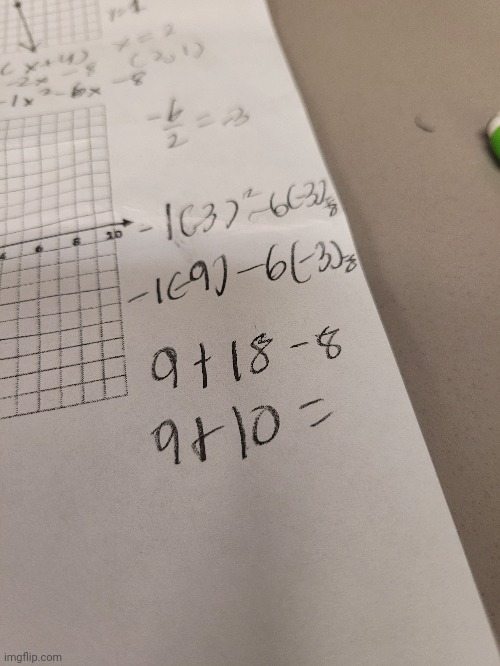 y=1
(x+4) x = 2
-2x -8 (2,1)
-1x²-6x -8
-6/2 = -3
6 8 10
-1(-3)²-6(-3)-8
-1(-9)-6(-3)-8
9+18-8
9+10=
imgflip.com